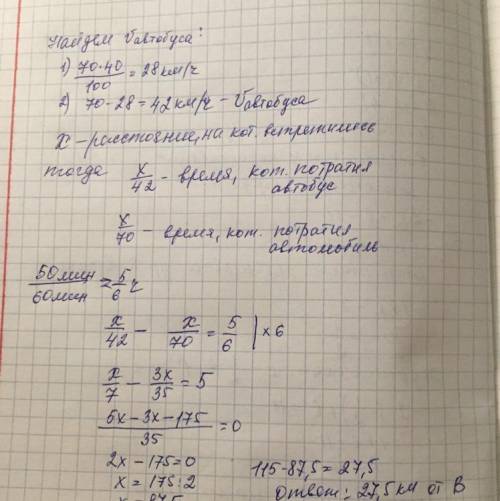 Найдем Vавтобуса:
1) 70·40/100 = 28 км/ч
2) 70-28=42 км/ч - Vавтобуса
x - расстояние, на кот. встретились
тогда x/42 - время, кот. потратил автобус
x/70 - время, кот. потратил автомобиль
50мин/60мин = 5/6 ч
x/42 - x/70 = 5/6 | ×6
x/7 - 3x/35 = 5
(5x-3x-175)/35 = 0
2x-175=0
x = 175:2
x = 87,5
115-87,5=27,5
Ответ: 27,5 км от В